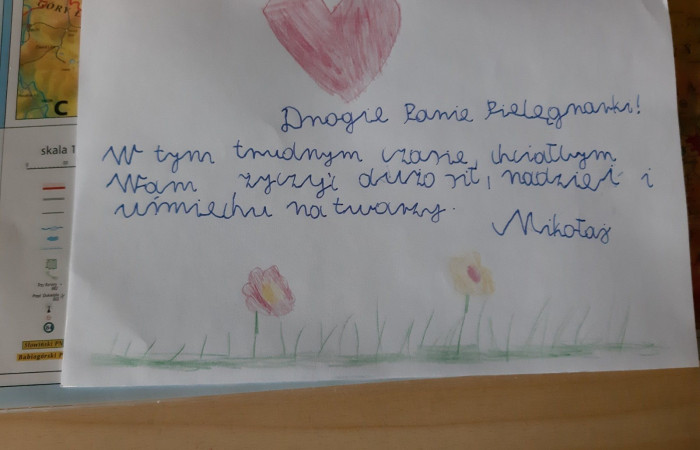 GÓRY
C
skala 1
Drogie Panie Pielęgniarki!
W tym trudnym czasie, chciałbym
Wam życzyć dużo sił, nadziei i
uśmiechu na twarzy.
Mikołaj
Słowiński P
Babiogórski P